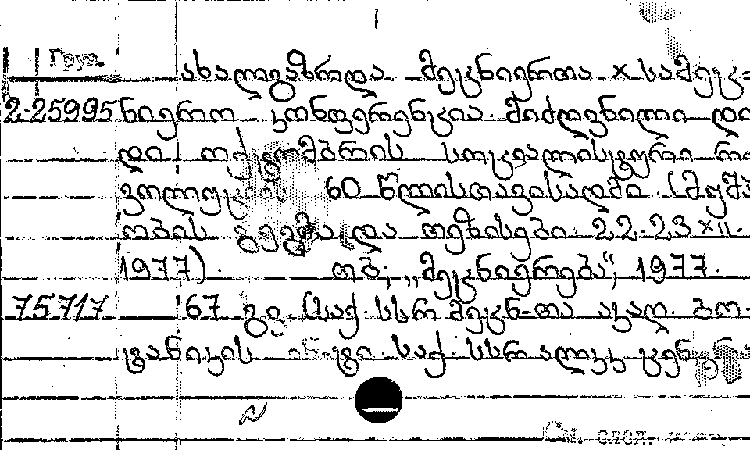 Груз.
ახალგაზრდა მეცნიერთა X სამეც-
2-25995 ნიერო კონფერენცია მიძღვნილი დი
დი ოქტომბრის სოციალისტური რე
ვოლუციის 60 წლისთავისადმი (მუშა
ობის გეგმა და თეზისები. 22-23 XII.
1977). თბ., „მეცნიერება“, 1977.
75717 67 გვ. (საქ. სსრ მეცნ-თა აკად. ბო-
ტანიკის ინ-ტი. საქ. სსრ ალკკ ცენტრა
См. след.